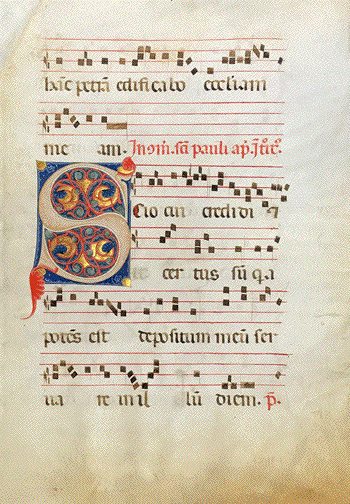 hac petra edificabo eccliam
me am. In oim. sci pauli apl. Introit.
Scio cui credidi ⁊
cer tus sum q a
potes est depositum meu ser
ua re in il lu diem. p.